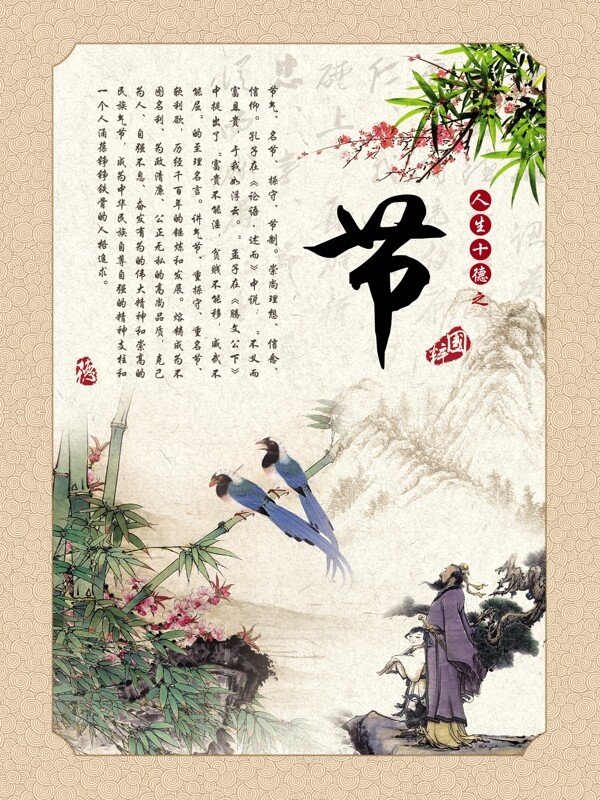 人生十德之
节
國粹
节气、名节、操守、节制。崇尚理想、信念、
信仰。孔子在《论语·述而》中说：“不义而
富且贵，于我如浮云。”孟子在《滕文公下》
中提出了“富贵不能淫，贫贱不能移，威武不
能屈”的至理名言。讲气节、重操守、重名节、
轻利欲，历经千百年的锤炼和发展。熔铸成为不
图名利、为政清廉、公正无私的高尚品质，克己
为人、自强不息、奋发有为的伟大精神和崇高的
民族气节，成为中华民族自尊自强的精神支柱和
一个人涌葆铮铮铁骨的人格追求。
德